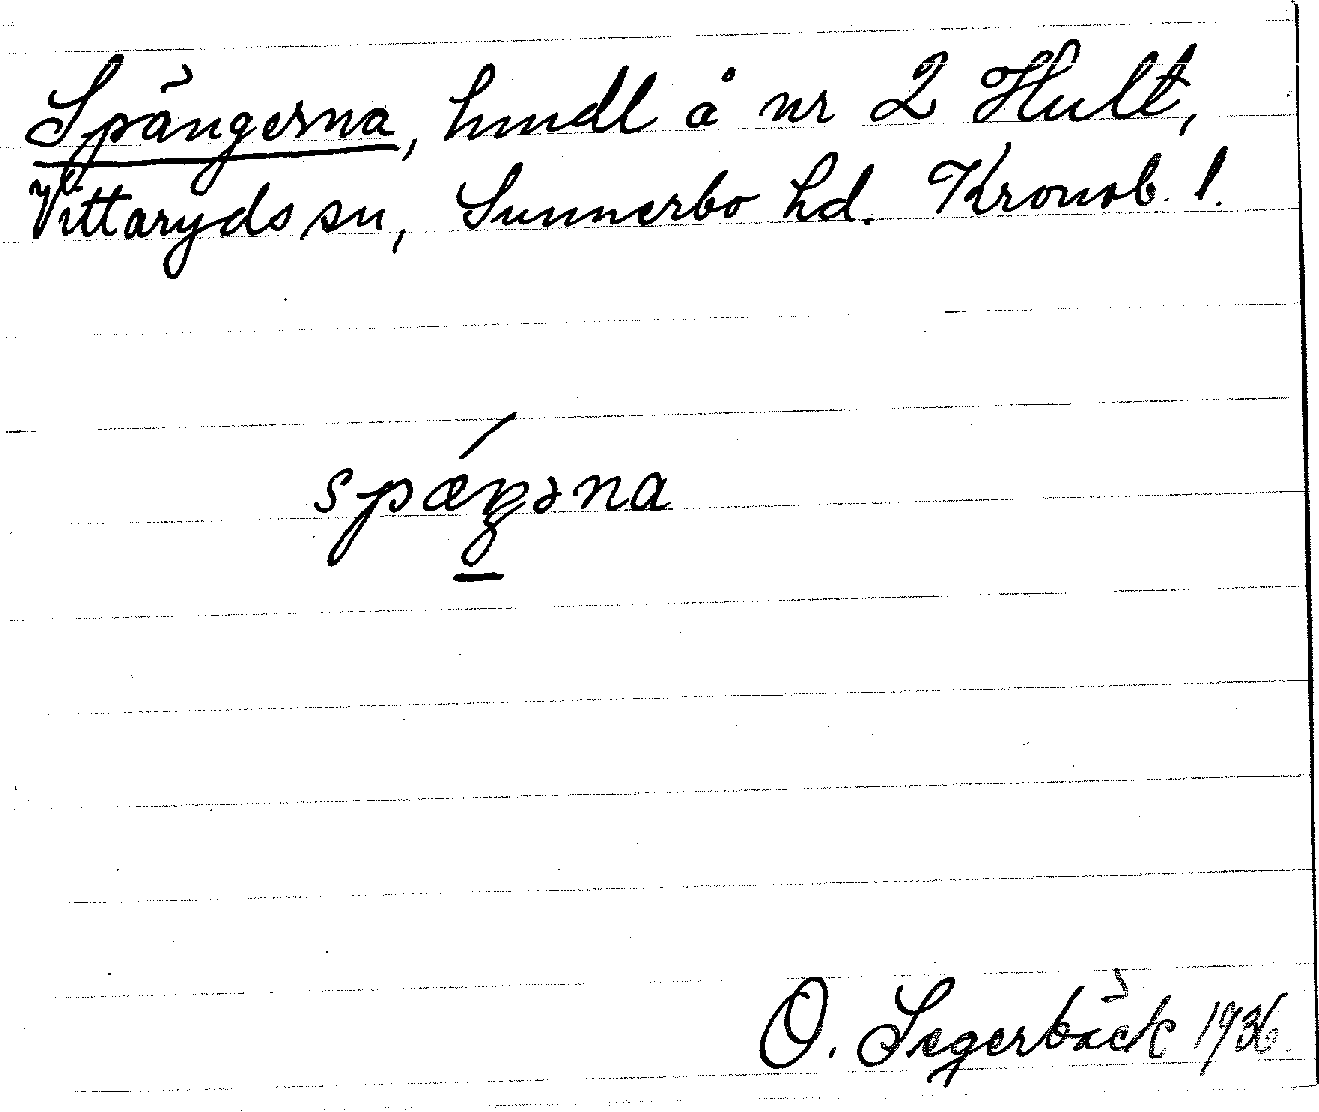 Spängerna, hmdl å nr 2 Hult,
Vittaryds sn, Sunnerbo hd. Kronob. l.
spæŋəna
O. Segerbäck 1936